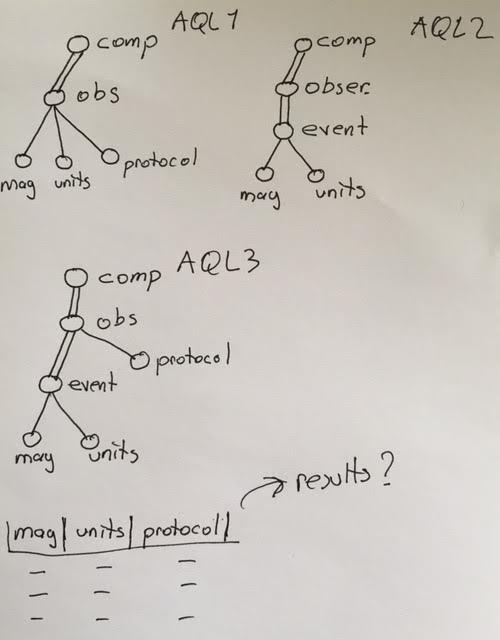 AQL1
comp
obs
mag units protocol
AQL2
comp
obser.
event
mag units
AQL3
comp
obs
protocol
event
mag units
results?
|mag| units| protocol|